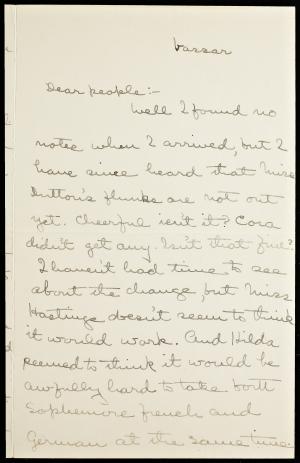 Vassar
Dear people:-
Well I found no
notes when I arrived, but I
have since heard that Miss
Dutton's flunks are not out
yet. Cheerful isn't it? Cora
didn't get any. Isn't that fine?
I haven't had time to see
about the change, but Miss
Hastings doesn't seem to think
it would work. And Hilda
seemed to think it would be
awfully hard to take both
Sophomore french and
German at the same time.